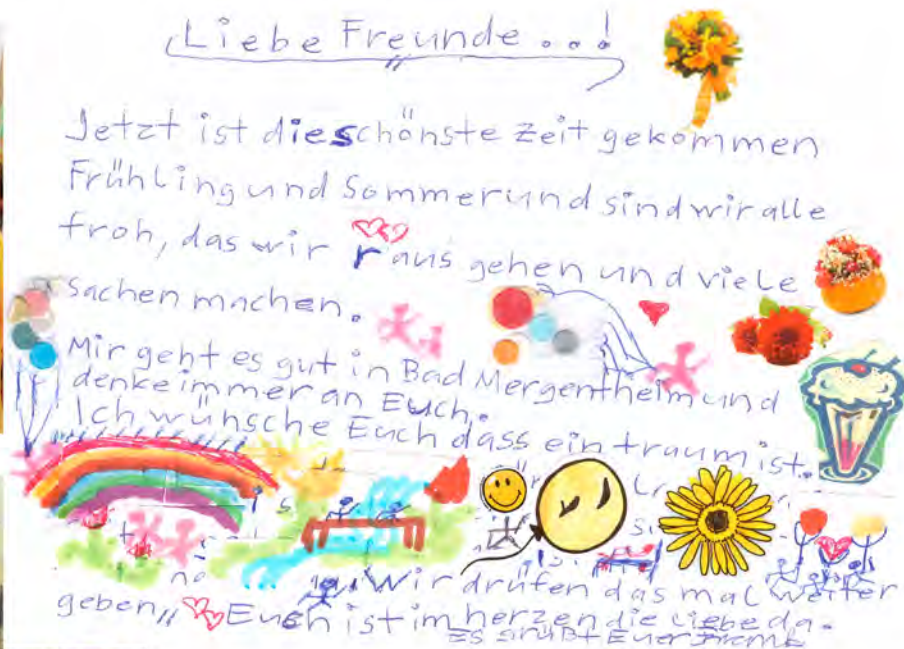 Liebe Freunde...!
Jetzt ist die schönste Zeit gekommen
Frühling und Sommer und sind wir alle
froh, das wir raus gehen und viele
Sachen machen.
Mir geht es gut in Bad Mergentheim und
denke immer an Euch.
Ich wünsche Euch dass ein traum ist.
Wir drüfen das mal weiter
geben,, Euch ist im herzen die liebe da.
Es grüßt Euer